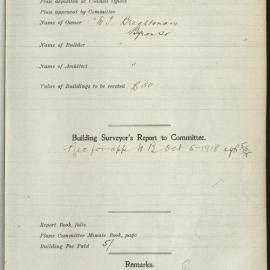 Plan deposited at Council Offices
Plan approved by Committee
Name of Owner
Name of Builder "
Name of Architect "
Value of Buildings to be erected £50
Building Surveyor's Report to Committee.
Rec for app Oct 5-1918
Report Book, folio
Plans Committee Minute Book, page
Building Fee Paid 5/
Remarks.